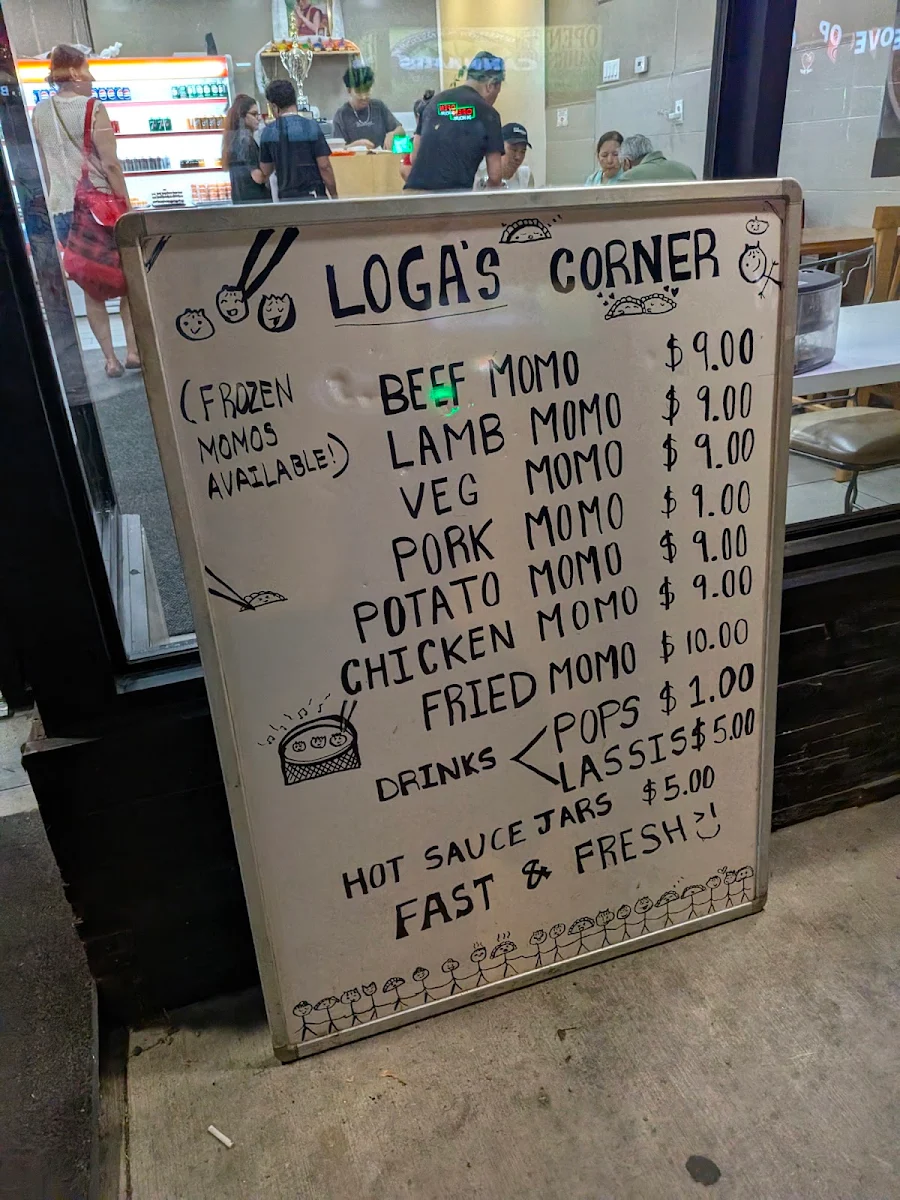 LOGA'S CORNER
(FROZEN
MOMOS
AVAILABLE!)
BEEF MOMO $9.00
LAMB MOMO $9.00
VEG MOMO $9.00
PORK MOMO $9.00
POTATO MOMO $9.00
CHICKEN MOMO $9.00
FRIED MOMO $10.00
DRINKS < POPS $1.00
LASSIS $5.00
HOT SAUCE JARS $5.00
FAST & FRESH!